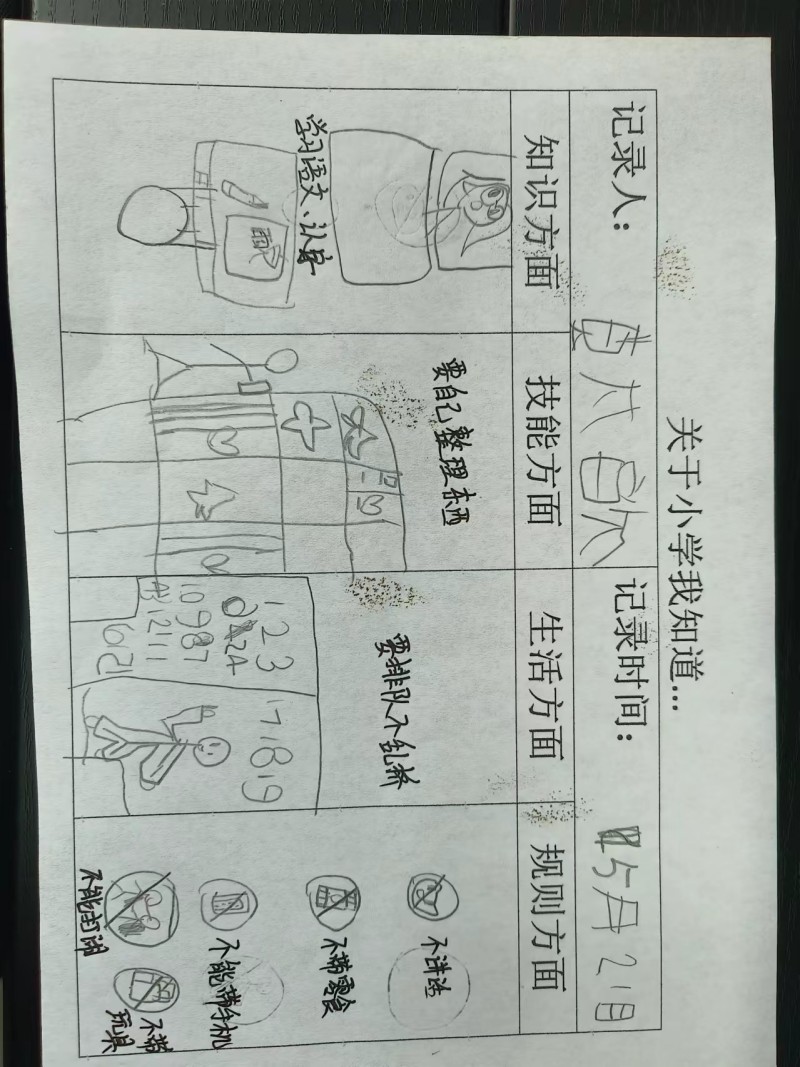 关于小学我知道...
记录人：
记录时间：
5月21日
知识方面
技能方面
生活方面
规则方面
学习语文、认字
要自己整理东西
要排队不乱挤
1 2 3
10 9 8 7
17 18 19
不讲话
不带零食
不能带手机
不能打闹
不带
玩具